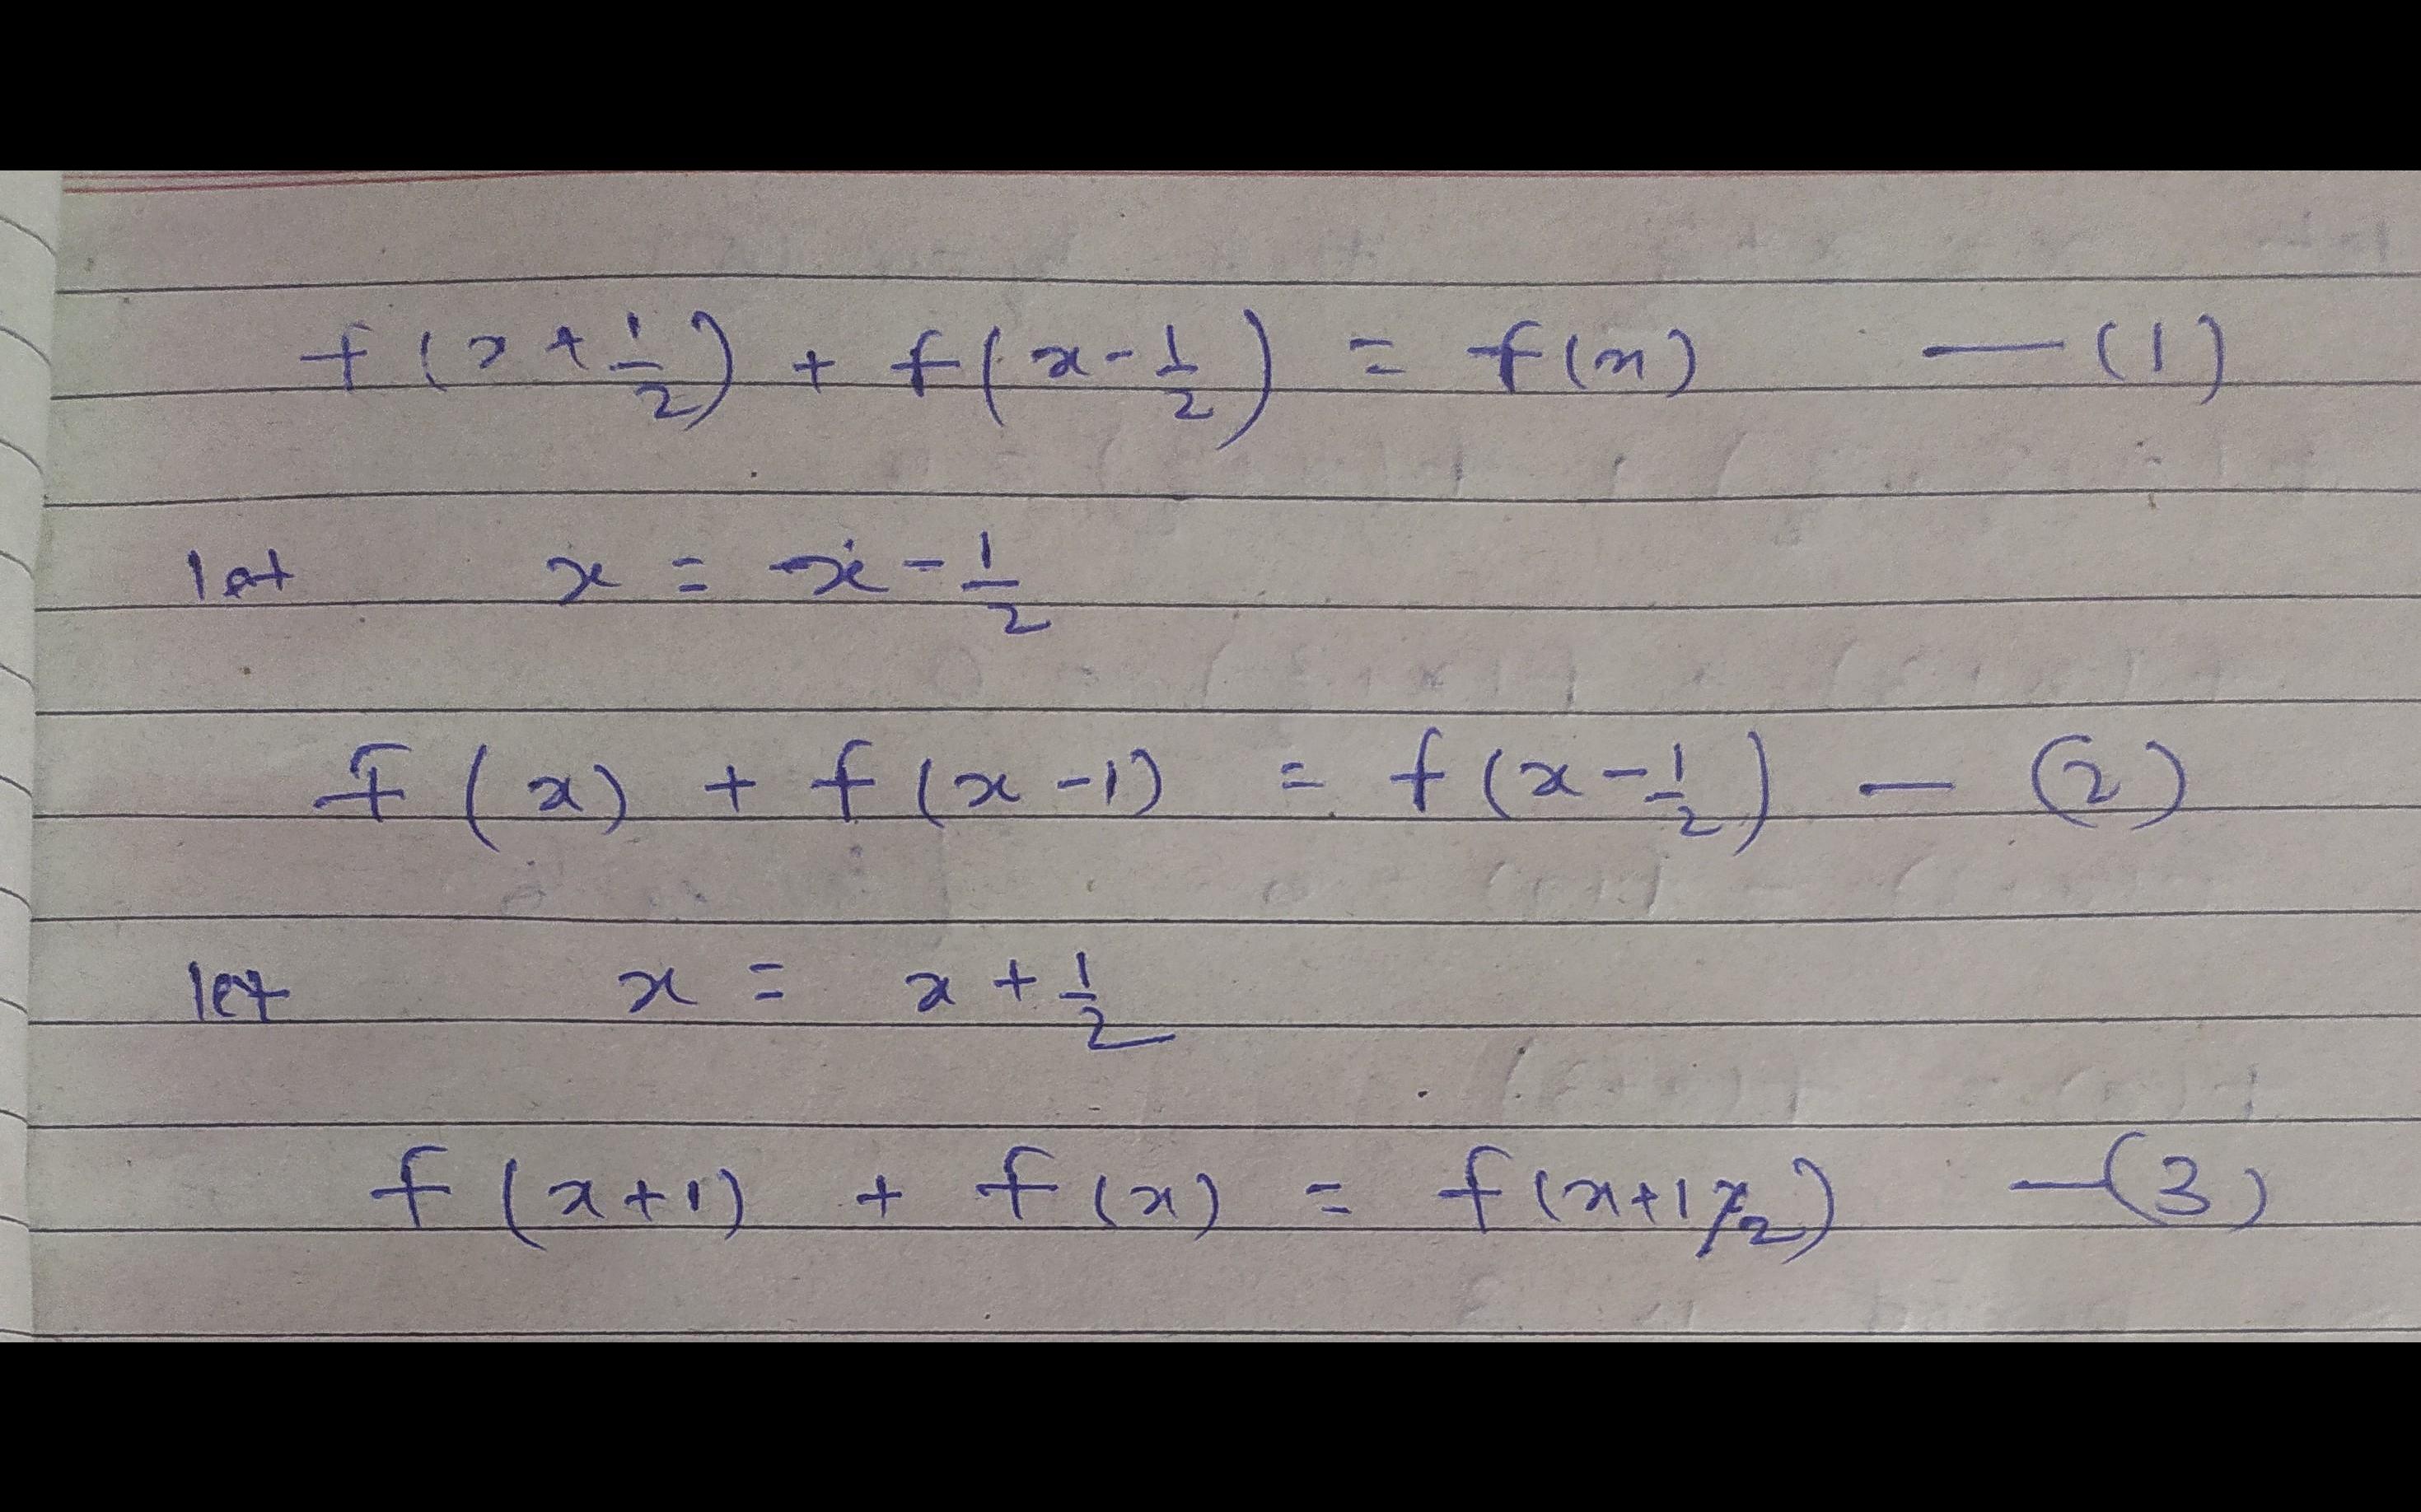 f(x+1/2) + f(x-1/2) = f(x) — (1)
let x = x - 1/2
f(x) + f(x-1) = f(x-1/2) — (2)
let x = x + 1/2
f(x+1) + f(x) = f(x+1/2) — (3)